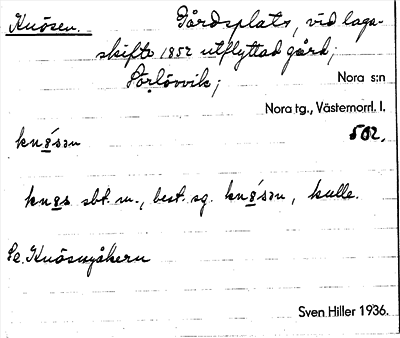 Knösen. Gårdsplats, vid laga-
skifte 1852 utflyttad gård;
Sörlövvik; Nora s:n
Nora tg., Västernorrl. l.
502.
knø´sən
knøs sbt. m., best. sg. knø´sən, kulle.
Se. Knösmyåkern
Sven Hiller 1936.